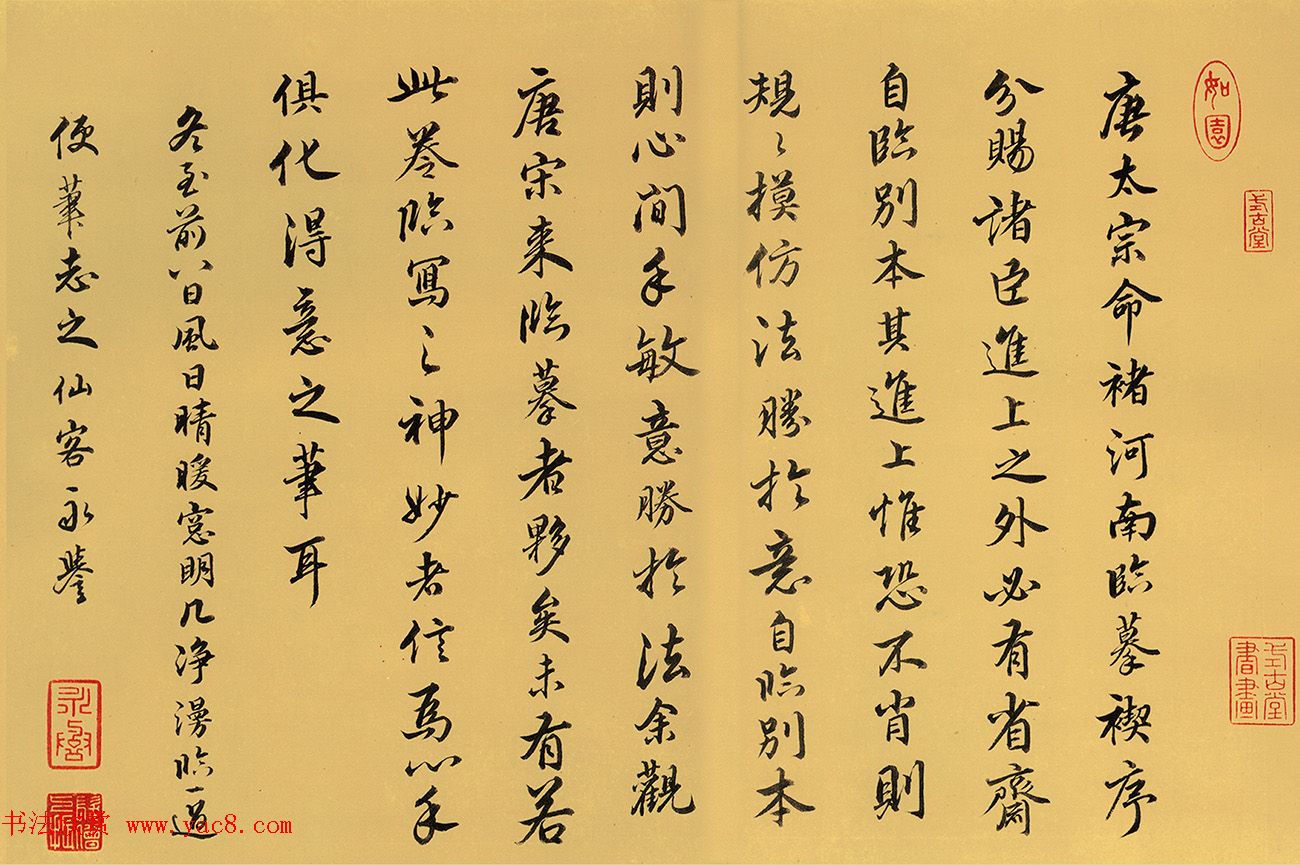 如園
式古堂
式古堂書畫
唐太宗命褚河南臨摹禊序
分賜諸臣進上之外必有省齋
自臨別本其進上惟恐不肖則
規〻摸仿法勝於意自臨別本
則心閒手敏意勝於法余觀
唐宋来臨摹者夥矣未有若
此卷臨寫之神妙者信為心手
俱化得意之筆耳
冬至前八日風日晴暖窓明几净漫臨一過
便筆志之仙客永譽
書法欣赏 www.yac8.com